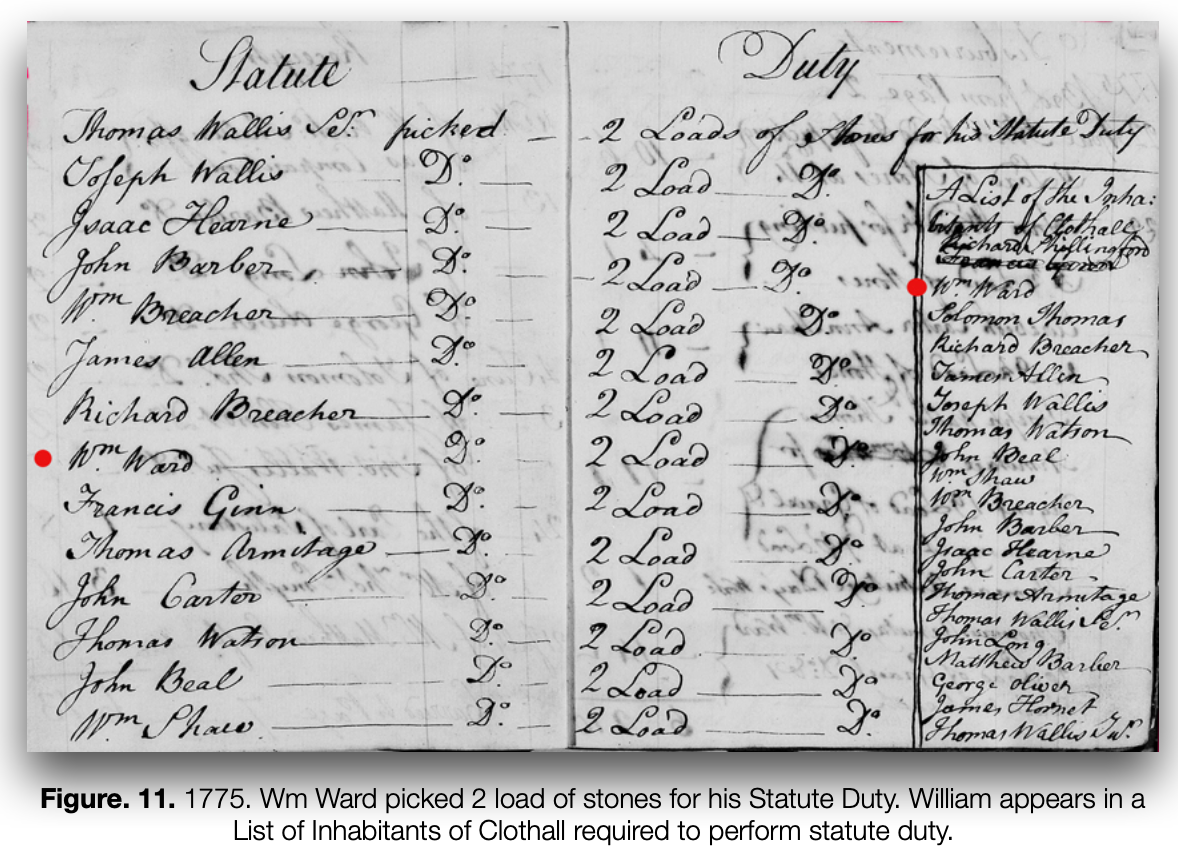 Statute Duty
Thomas Wallis Senr. picked 2 Loads of Stones for his Statute Duty
Joseph Wallis Do. 2 Load Do.
Isaac Hearne Do. 2 Load Do.
John Barber Do. 2 Load Do.
Wm Breacher Do. 2 Load Do.
James Allen Do. 2 Load Do.
Richard Breacher Do. 2 Load Do.
Wm Ward Do. 2 Load Do.
Francis Ginn Do. 2 Load Do.
Thomas Armitage Do. 2 Load Do.
John Carter Do. 2 Load Do.
Thomas Watson Do. 2 Load Do.
John Beal Do. 2 Load Do.
Wm Shaw Do. 2 Load Do.
A List of the Inha:
bitants of Clothall
Richard Shillingford
Wm Ward
Solomon Thomas
Richard Breacher
James Allen
Joseph Wallis
Thomas Watson
John Beal
Wm Shaw
Wm Breacher
John Barber
Isaac Hearne
John Carter
Thomas Armitage
Thomas Wallis Ser.
John Long
Matthew Barber
George Oliver
James Hornet
Thomas Wallis Jur.
Figure. 11. 1775. Wm Ward picked 2 load of stones for his Statute Duty. William appears in a
List of Inhabitants of Clothall required to perform statute duty.